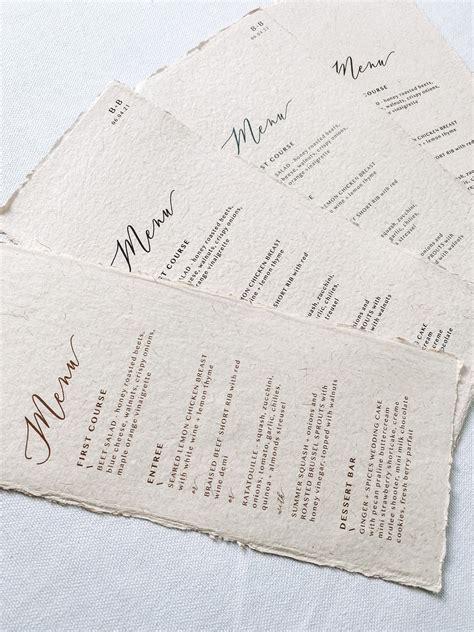 Menu
COURSE
honey roasted beets,
walnuts, crispy onions,
vinaigrette
CHICKEN BREAST
+ lemon thyme
RIB with red
B-B
06.04.21
Menu
COURSE
SALAD - honey roasted beets,
walnuts, crispy onions,
orange vinaigrette
LEMON CHICKEN BREAST
wine + lemon thyme
SHORT RIB with red
squash, zucchini,
garlic, chilies,
streusel
onions and
SPROUTS with
with walnuts
CAKE
B-B
06.04.21
Menu
FIRST COURSE
BEET SALAD - honey roasted beets,
cheese, walnuts, crispy onions,
orange vinaigrette
CHICKEN BREAST
+ lemon thyme
SHORT RIB with red
zucchini,
Menu
FIRST COURSE
BEET SALAD - honey roasted beets,
blue cheese, walnuts, crispy onions,
maple-orange vinaigrette
ENTREE
SEARED LEMON CHICKEN BREAST
with white wine + lemon thyme
or
BRAISED BEEF SHORT RIB with red
wine demi
or
RATATOUILLE - squash, zucchini,
onions, tomato, garlic, chilies,
quinoa + almonds streusel
with
SUMMER SQUASH + onions and
ROASTED BRUSSEL SPROUTS with
honey vinegar, topped with walnuts
DESSERT BAR
GINGER + SPICES WEDDING CAKE
with pecan praline buttercream
mini strawberry shortcake, creme
brulee shooter, mini milk chocolate
cookies, fresh berry parfait